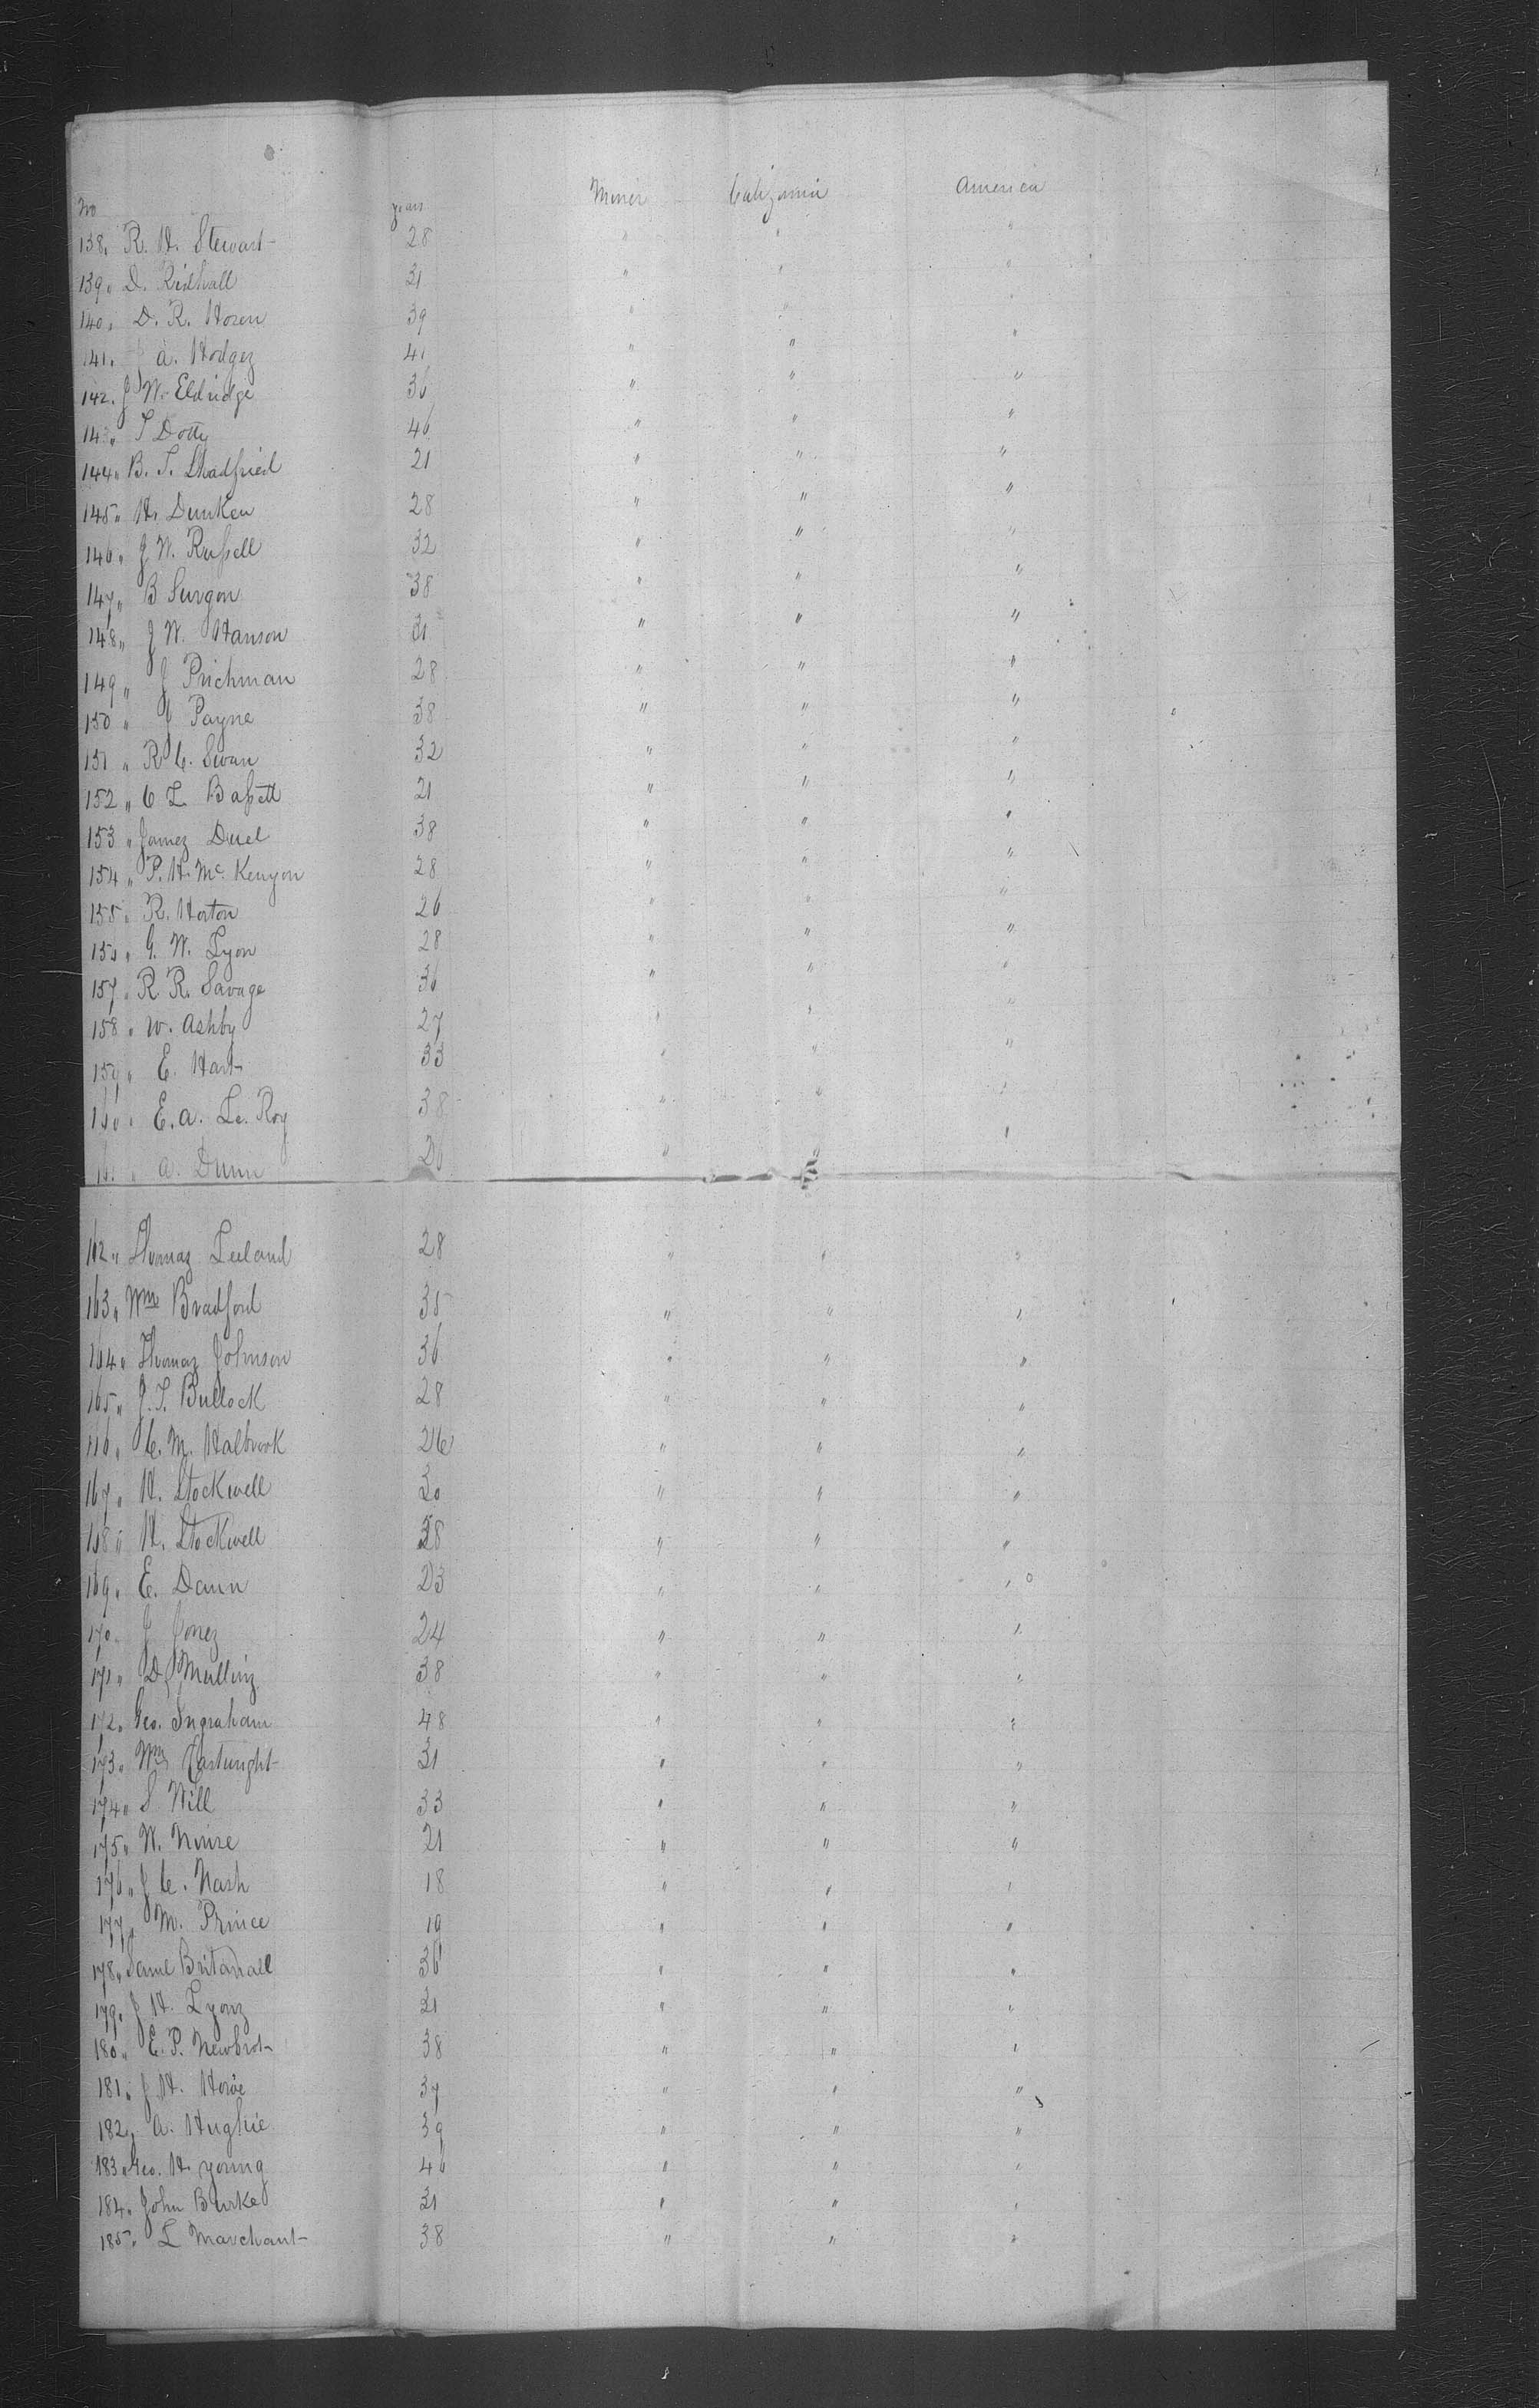 No years Miner California America
138 " R. H. Stewart 28 " " "
139 " D. Ridhall 31 " " "
140 " D. R. Horen 39 " " "
141 " J A. Hodgez 41 " " "
142 " J W. Eldridge 36 " " "
14 " T Dotty 46 " " "
144 " B. T. Shadfried 21 " " "
145 " H. Dunken 28 " " "
146 " J W. Russell 32 " " "
147 " B Surgon 38 " " "
148 " J W. Hanson 31 " " "
149 " J Prichman 28 " " "
150 " J Payne 38 " " "
151 " R C. Swan 32 " " "
152 " C L Bassett 21 " " "
153 " Jamez Duel 38 " " "
154 " P. H. Mc Kenyon 28 " " "
155 " R. Horton 26 " " "
156 " G. W. Lyon 28 " " "
157 " R R. Savage 36 " " "
158 " W. Ashby 27 " " "
159 " E. Hart 33 " " "
160 " E. A. Le. Roy 38 " " "
161 " A. Dunn 26 "
162 " Thomaz Leeland 28 " " "
163 " Wm Bradford 35 " " "
164 " Thomaz Johnson 36 " " "
165 " J. T. Bullock 28 " " "
166 " C. M. Halbrook 26 " " "
167 " H. Stockwell 30 " " "
168 " H. Stockwell 38 " " "
169 " E. Dann 23 " " "
170 " J Jonez 24 " " "
171 " D Mulling 38 " " "
172 " Geo. Ingraham 48 " " "
173 " Wm Cartwright 31 " " "
174 " S Will 33 " " "
175 " W. Nourse 21 " " "
176 " J C. Nash 18 " " "
177 " M. Prince 19 " " "
178 " Saml 36 " " "
179 " J H. Lyonz 21 " " "
180 " E. P. 38 " " "
181 " J H. Howe 37 " " "
182 " A. Hughie 39 " " "
183 " Geo. H. young 46 " " "
184 " John Burke 31 " " "
185 " L Marchant 38 " " "